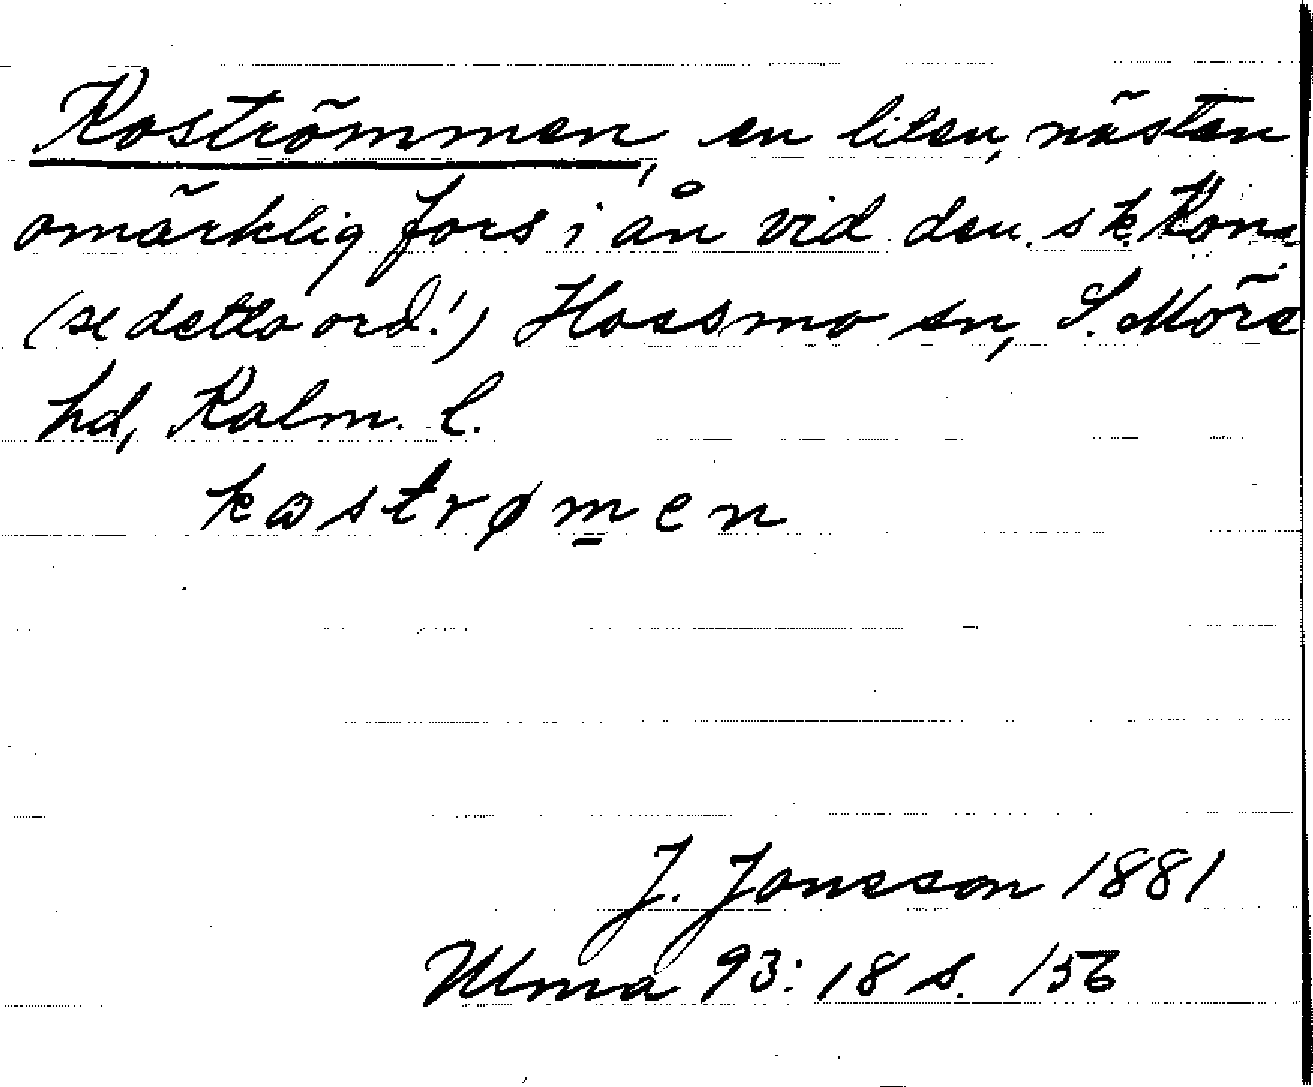 Koströmmen, en liten, nästan
omärklig fors i ån vid den s k Kon
(se detta ord!) Hossmo sn, S. Möre
hd, Kalm. l.
kastrømen
J. Jonsson 1881
Ulma 93:18 s. 156